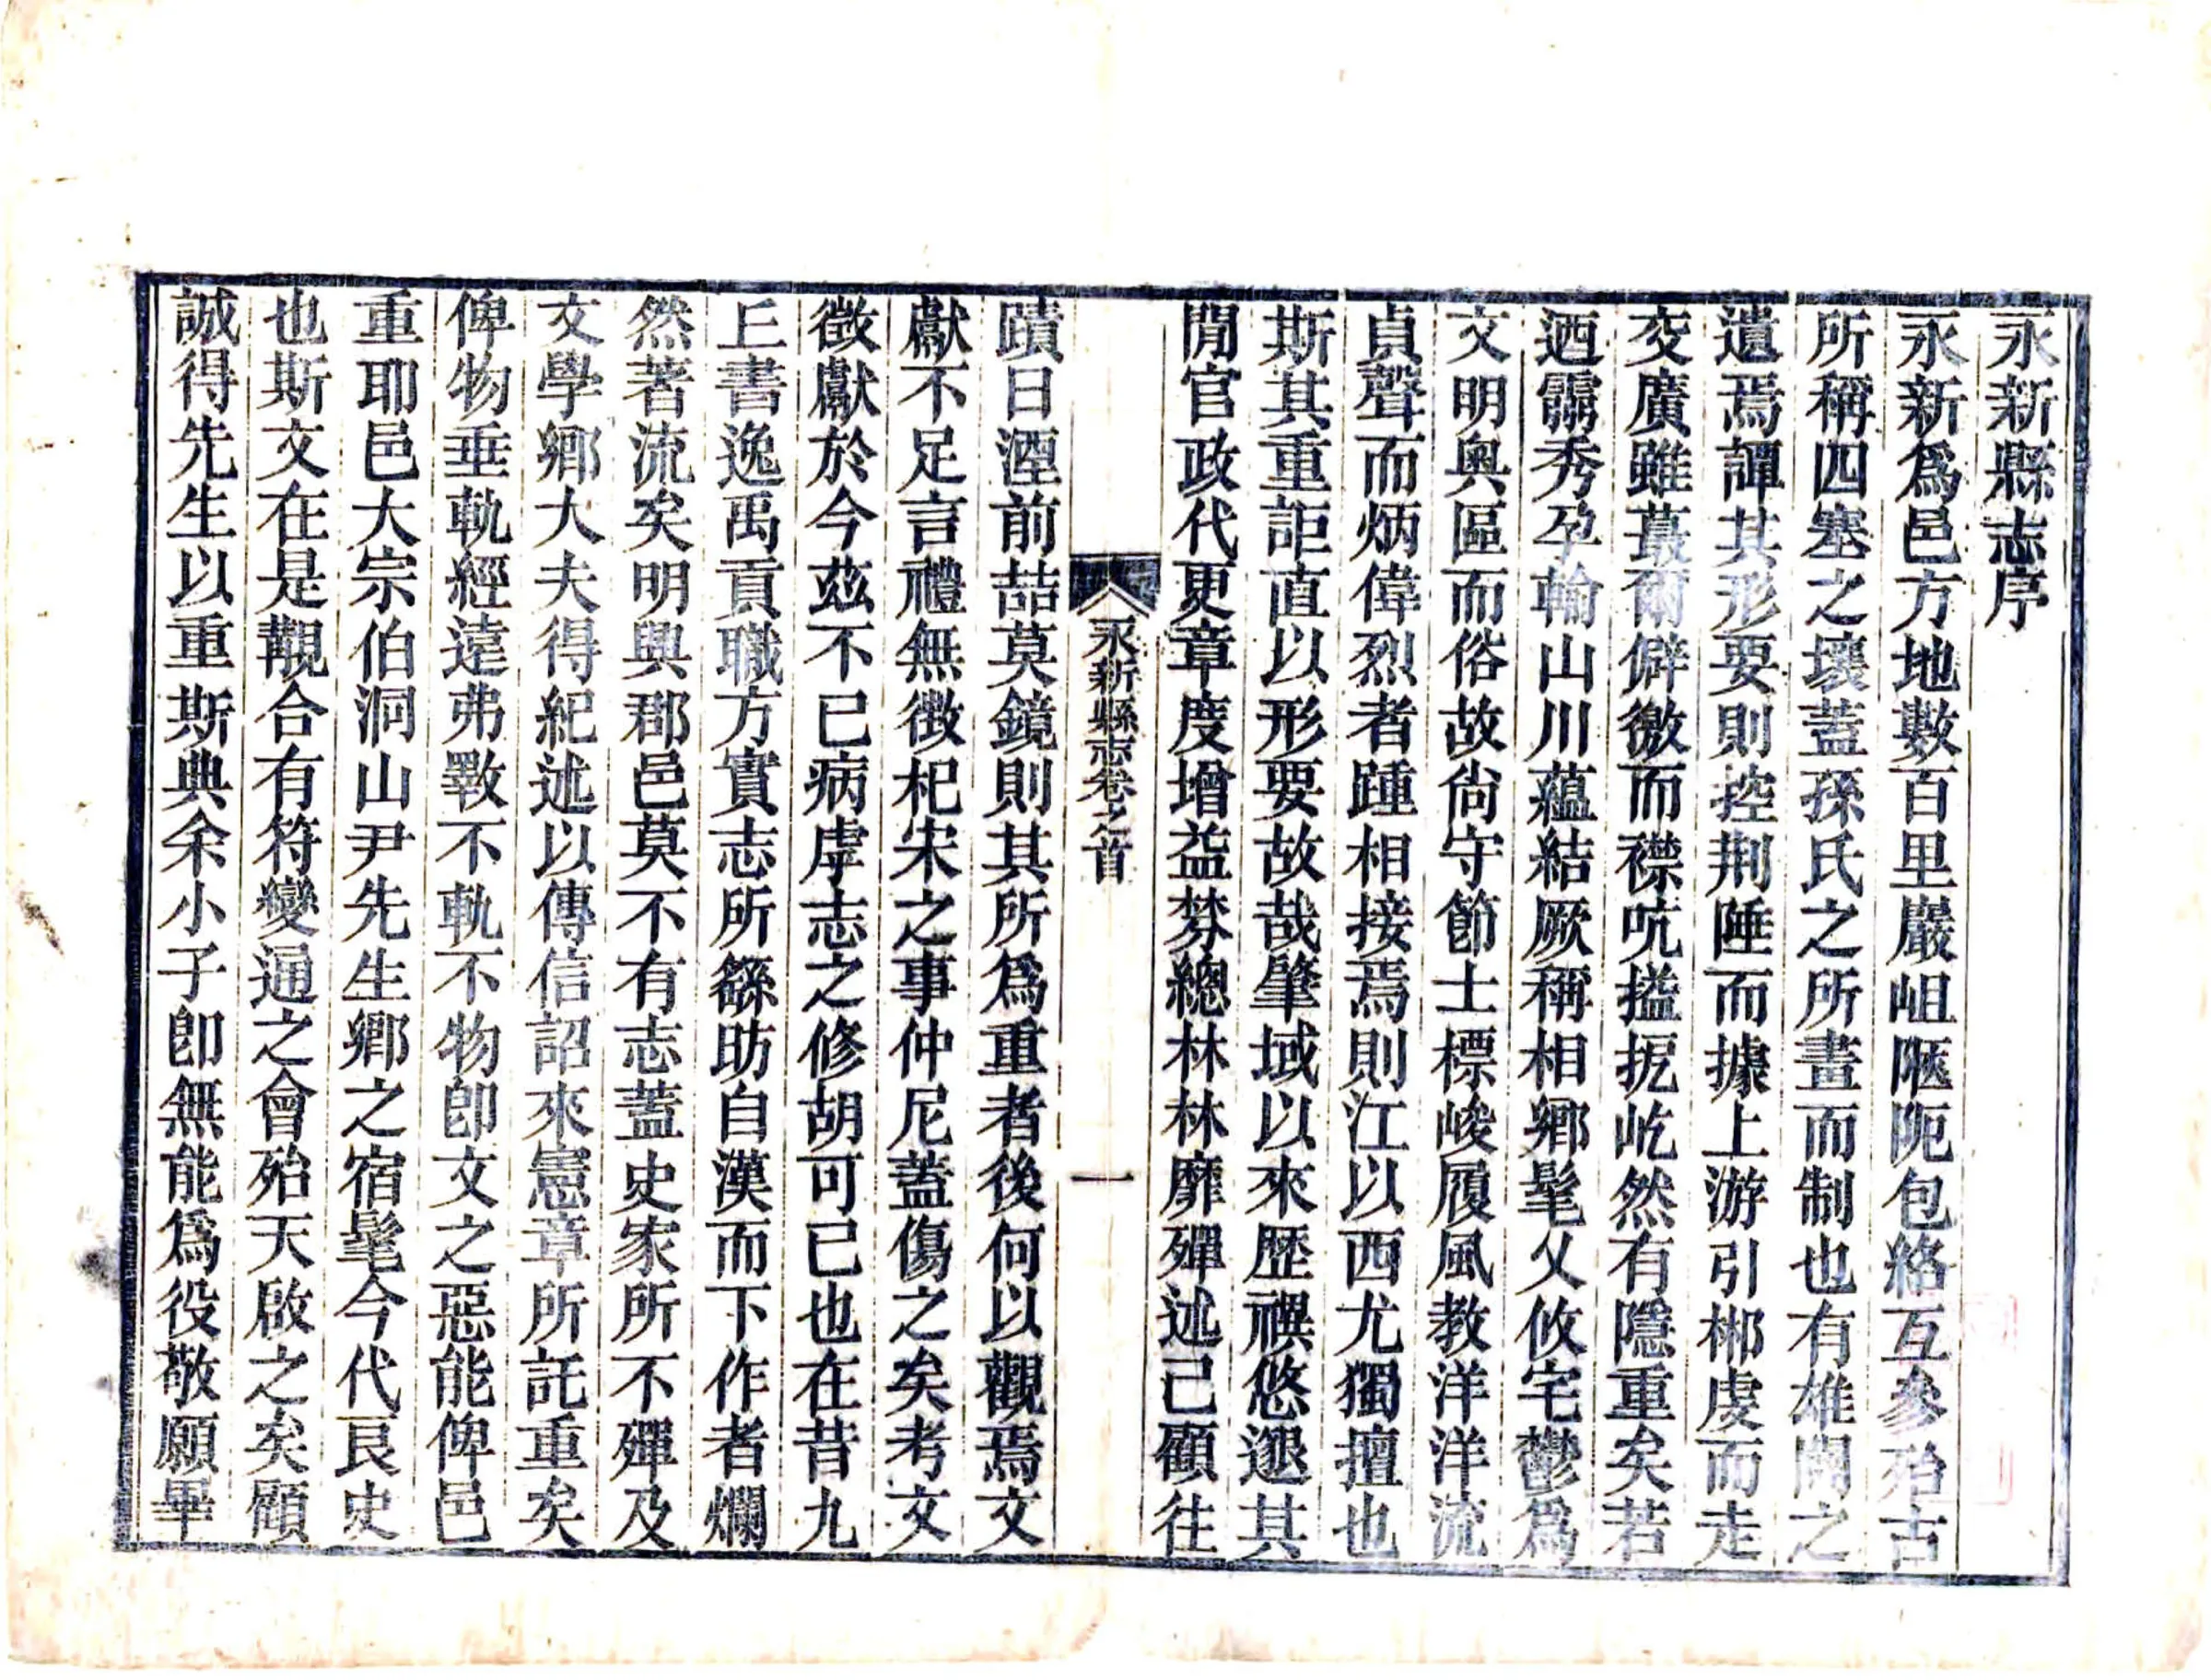 永新縣志序
永新爲邑方地數百里巖岨陬阨包絡互參殆古
所稱四塞之壤蓋孫氏之所畫而制也有雄閫之
遺焉譚其形要則控荆陲而據上游引郴虔而走
交廣雖蕞爾僻徼而襟吭搤扼屹然有隱重矣若
迺霱秀孕輸山川蘊結厥稱相鄉髦乂攸宅鬱爲
文明奧區而俗故尚守節士標峻履風教洋洋流
貞聲而炳偉烈者踵相接焉則江以西尤獨擅也
斯其重詎直以形要故哉肇域以來歷禩悠邈其
閒官政代更章度增益棼總林林靡殫述已顧往
永新縣志卷之首
一
蹟日湮前喆莫鏡則其所爲重者後何以觀焉文
獻不足言禮無徵杞宋之事仲尼蓋傷之矣考文
徵獻於今茲不已病虖志之修胡可已也在昔九
丘書逸禹貢職方實志所繇昉自漢而下作者爛
然著流矣明興郡邑莫不有志蓋史家所不殫及
文學鄉大夫得紀述以傳信詔來憲章所託重矣
俾物垂軌經遠弗斁不軌不物卽文之惡能俾邑
重耶邑大宗伯洞山尹先生鄉之宿髦今代良史
也斯文在是觀合有符變通之會殆天啟之矣顧
誠得先生以重斯典余小子卽無能爲役敬願畢